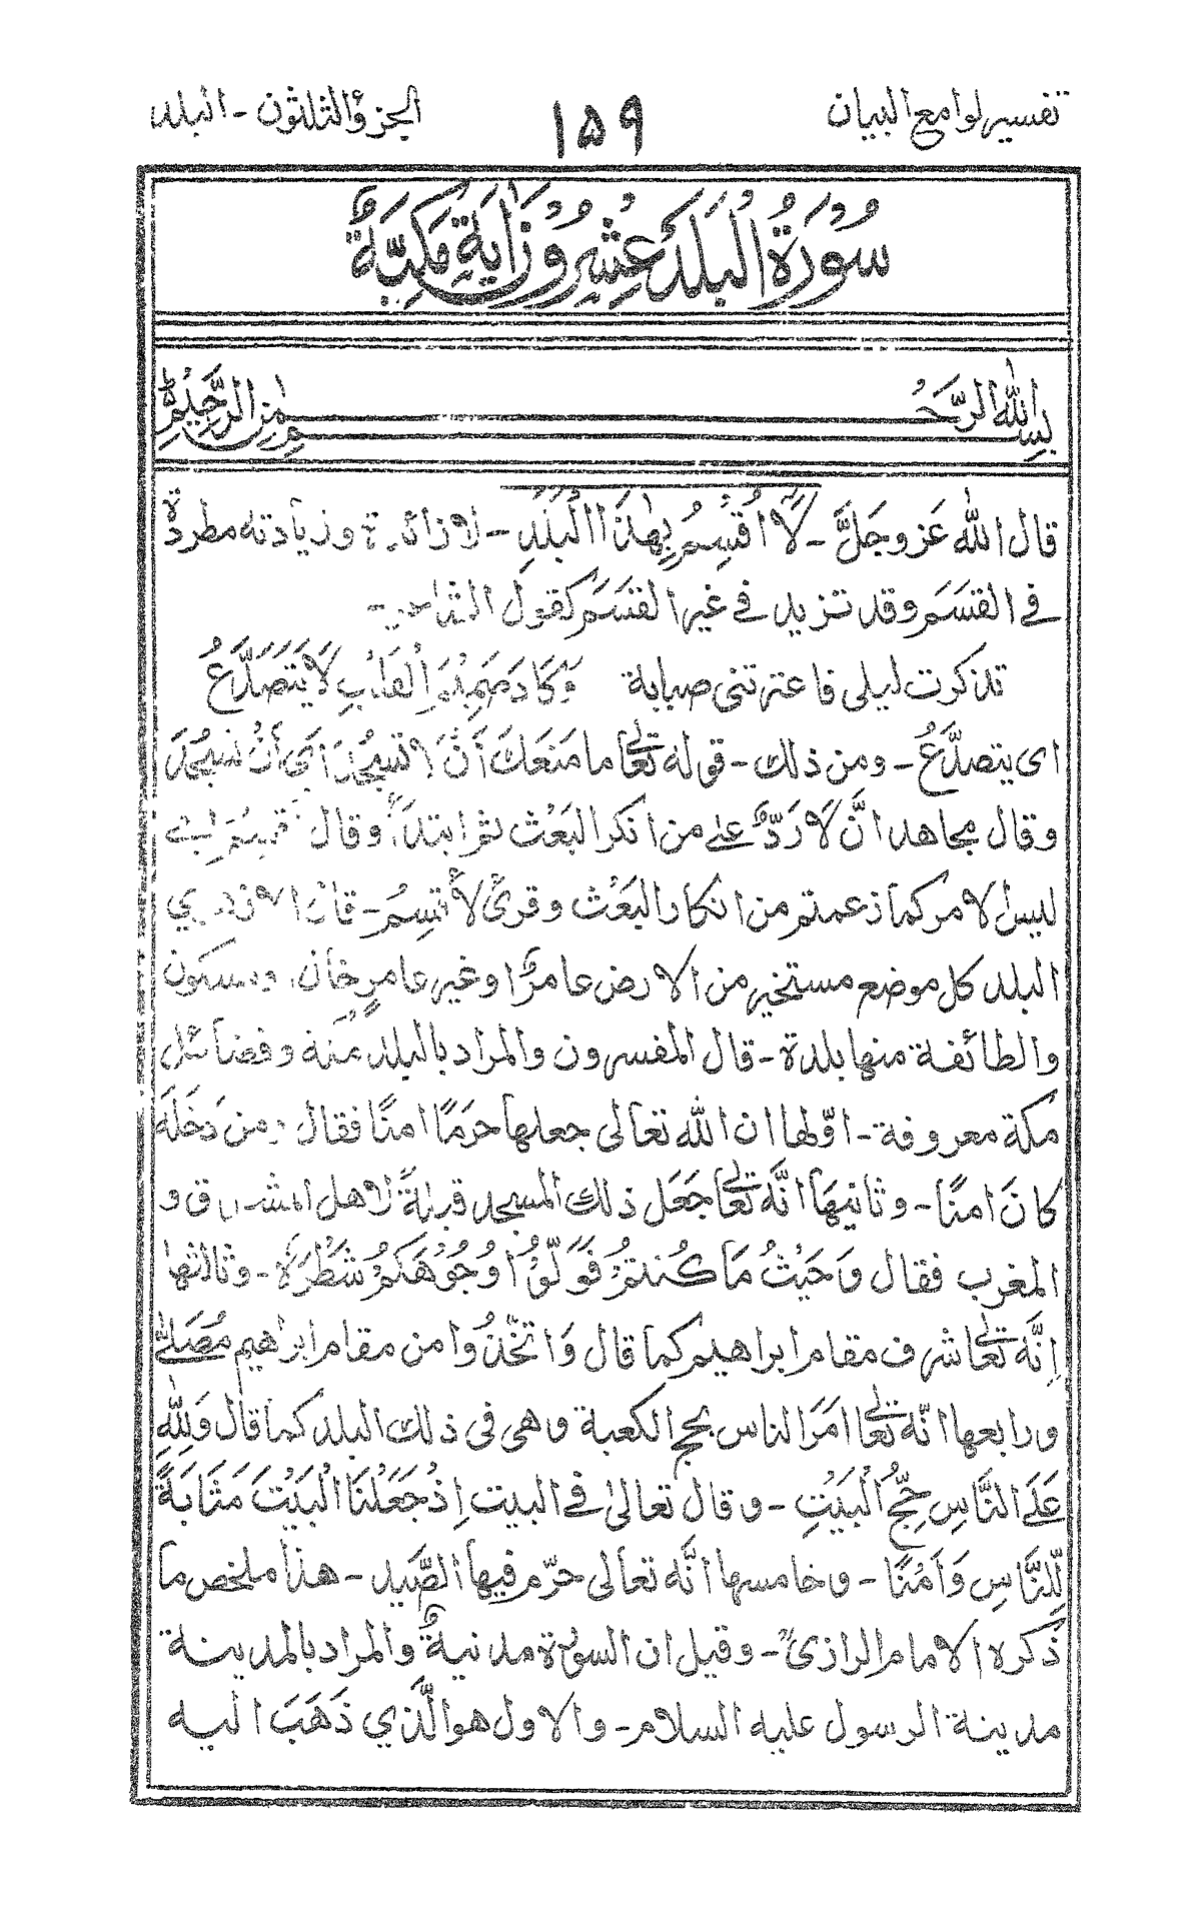 تفسير لوامع البيان
١٥٩
الجزء الثلثون - البلد
سُوْرَةُ الْبَلَدِ عِشْرُوْنَ اٰيَةٍ مَكِّيَّةٌ
بِسْمِ اللهِ الرَّحْمٰنِ الرَّحِيْمِ
قال الله عَز وجَلَّ - لَآ اُقْسِمُ بِهٰذَا الْبَلَدِ - لا زائدة وزيادته مطردة
فى القسَم وقد تزيد فى غير القسَم كقول الشاعر
تذكرت ليلى فاعترتنى صبابة وَكَادَ صَمِيْمُ الْقَلْبِ لَا يَتَصَدَّعُ
اى يتصدَّعُ - ومن ذلك - قوله تعالى ما مَنَعَكَ اَنْ لَا تَسْجُدَ اَى اَنْ تَسْجُدَ
وقال مجاهد انَّ لَا رَدٌّ على من انكر البَعْث ثم ابتدأ وقال
ليس لامر كما زعمتم من انكار البَعْث وقرئ لَأُقسِمُ - قال الازهري
البلد كل موضع مستخير من الارض عامرًا وغير عامرٍ خالٍ ومسكون
والطائفة منها بلدة - قال المفسرون والمراد بالبلد مكة وفضائل
مكة معروفة - اوّلها ان الله تعالى جعلها حرَمًا امنًا فقال ومن دَخَلَهٗ
كانَ امنًا - وثانيها انَّه تعالى جَعَل ذلك المسجد قبلةً لاهل المشرق و
المغرب فقال وَحَيْثُ مَا كُنتُمْ فَوَلُّوْا وُجُوْهَكُمْ شَطْرَهٗ - وثالثها
اِنَّه تعالى شرف مقام ابراهيم كما قال وَاتَّخِذُوا من مقام ابراهيم مُصَلّٰى
ورابعها انّه تعالى امَرَ الناس بحج الكعبة وهى فى ذلك البلد كما قال وَلِلّٰهِ
عَلَى النَّاسِ حِجُّ الْبَيْتِ - وقال تعالىٰ فى البيت اِذْ جَعَلْنَا الْبَيْتَ مَثَابَةً
لِّلنَّاسِ وَاَمْنًا - وخامسها انَّه تعالى حرّم فيها الصَّيد - هذا ملخص ما
ذكره الامام الرازىؒ - وقيل ان السورة مدنيةٌ والمراد بالمدينة
مدينة الرسول عليه السلام - والاول هو الَّذي ذَهَبَ اليه